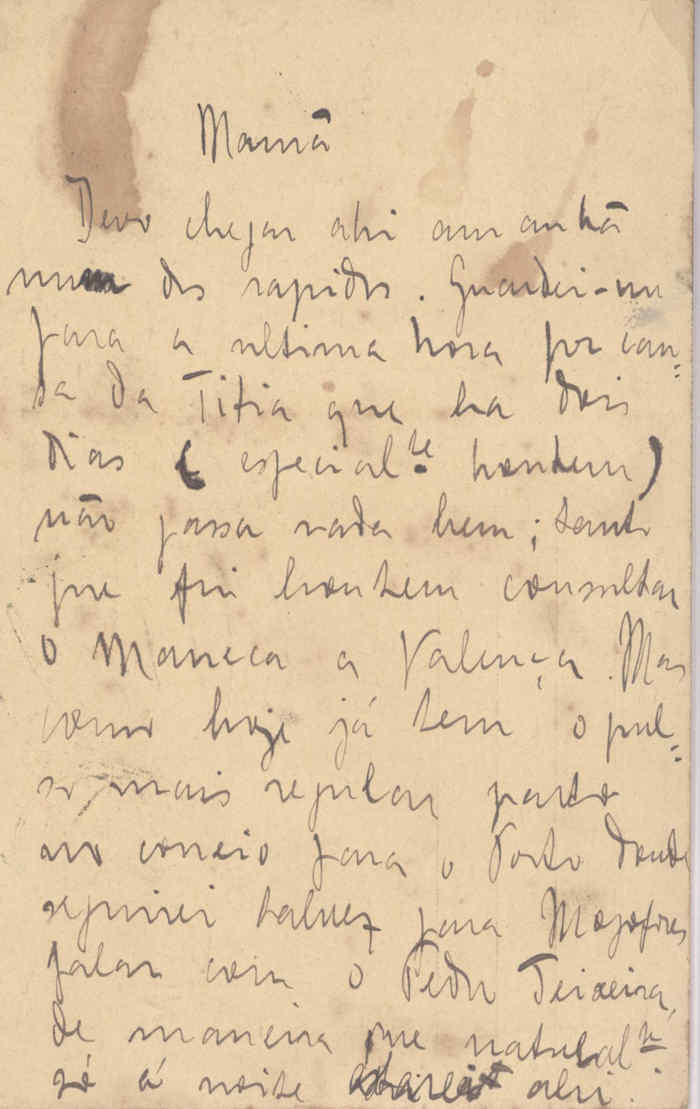 Mamã
Devo chegar ahi amanhã
num dos rapidos. Guardei-me
para a ultima hora por cau=
sa da Titia que ha dois
dias (especialte hontem)
não passa nada bem; tanto
que fui hontem consultar
o Maneca a Valença. Mas
como hoje já tem o pul=
so mais regular parto
no correio para o Porto donde
seguirei talvez para Mogofores
falar com o Pedro Teixeira,
de maneira que naturalte
só á noite estarei ahi.